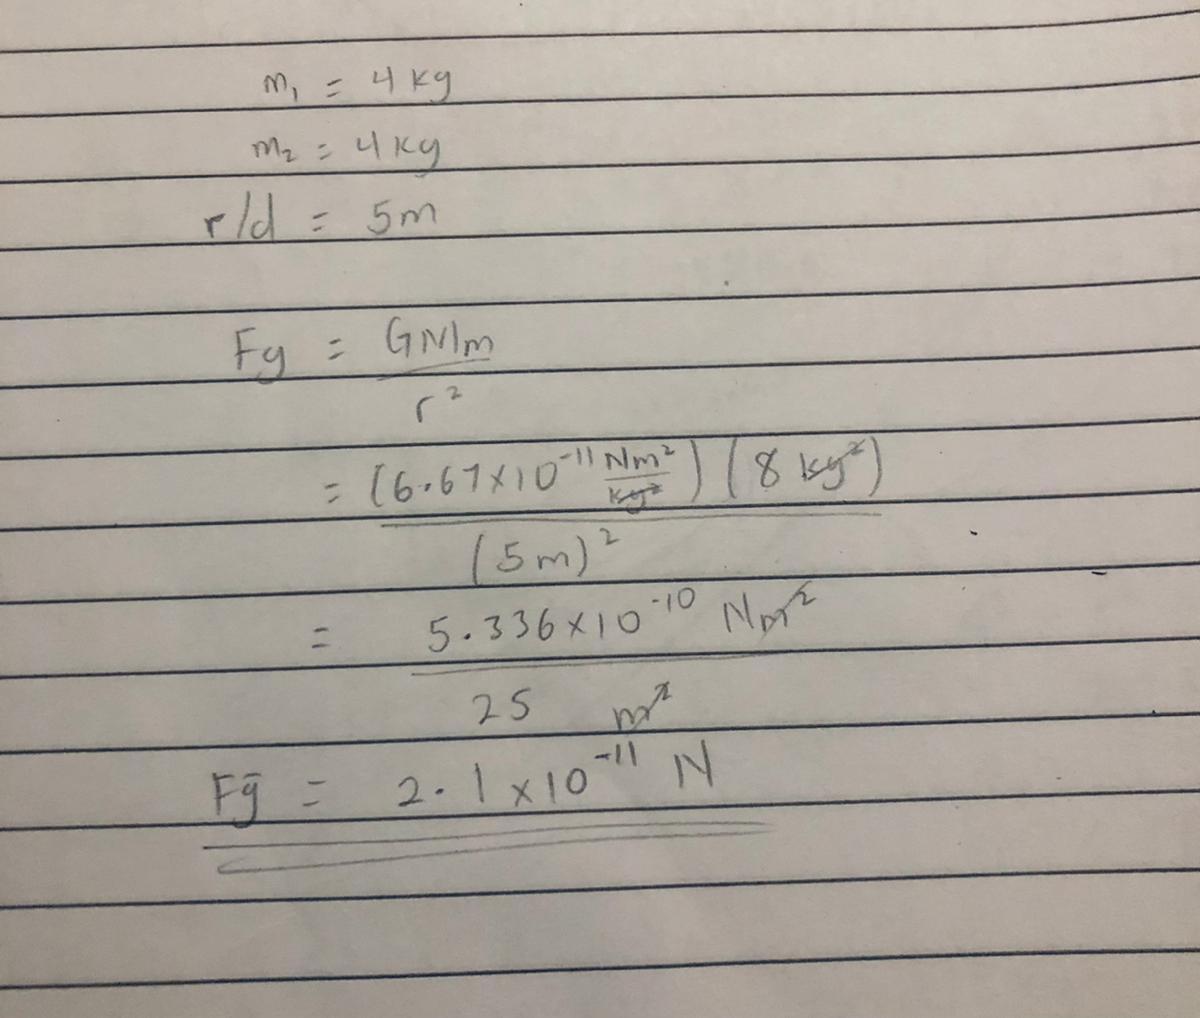 m₁ = 4 kg
m₂ = 4 kg
r/d = 5m
Fg = GMm
r²
= (6.67 × 10⁻¹¹ Nm²/kg²) (8 kg²)
(5m)²
= 5.336 × 10⁻¹⁰ Nm²
25 m²
Fg = 2.1 × 10⁻¹¹ N